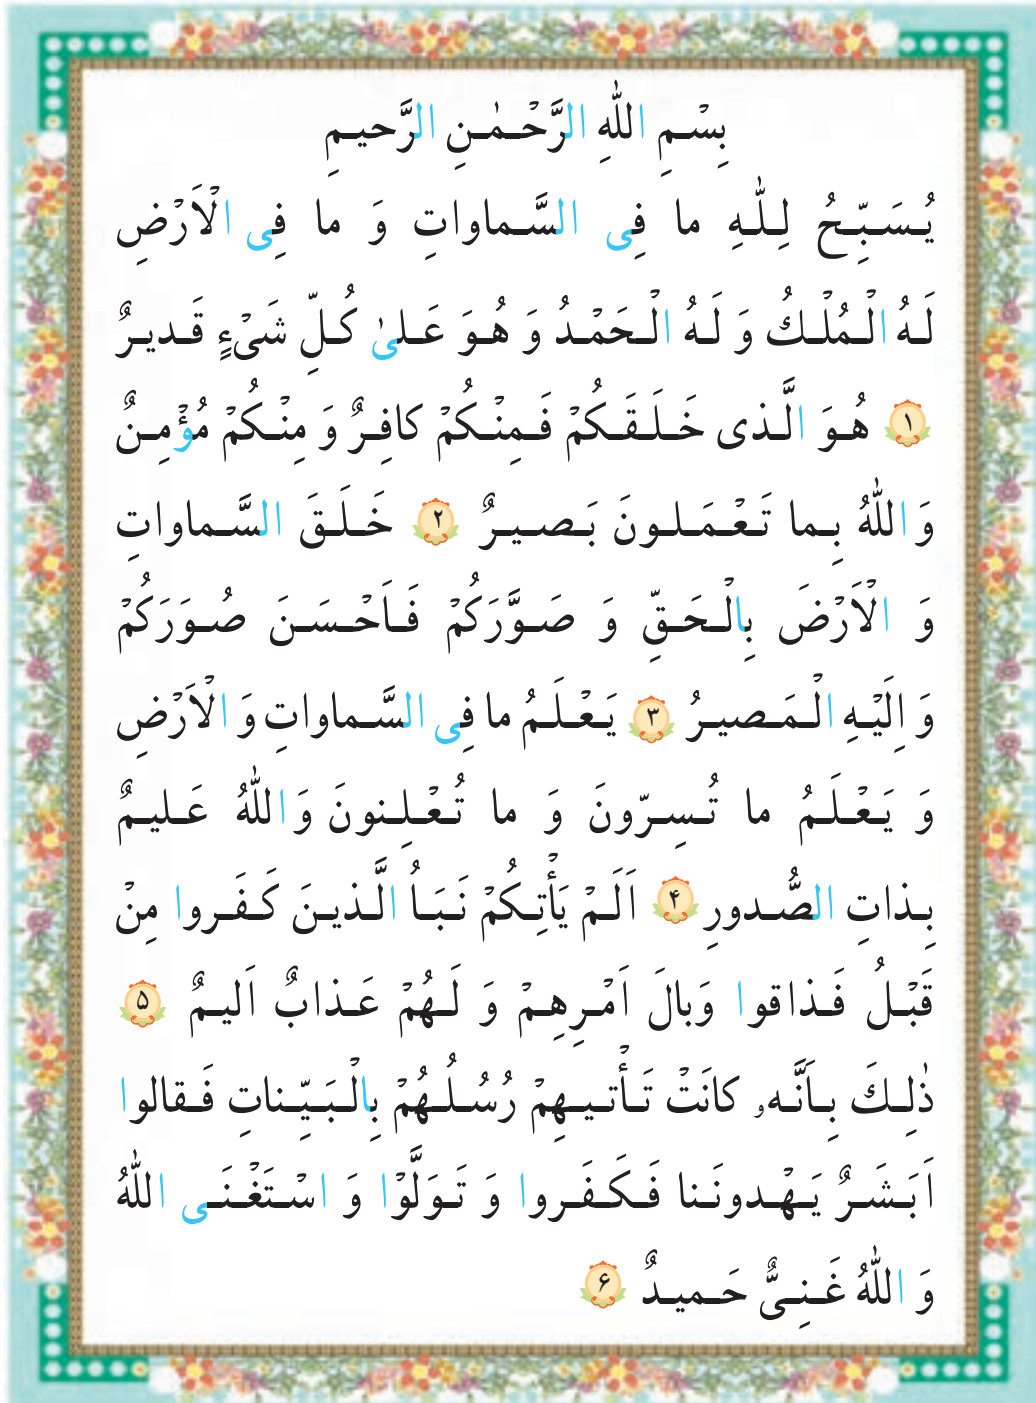 بِسْمِ اللّٰهِ الرَّحْمٰنِ الرَّحیمِ
یُسَبِّحُ لِلّٰهِ ما فِی السَّماواتِ وَ ما فِی الْاَرْضِ
لَهُ الْمُلْكُ وَ لَهُ الْحَمْدُ وَ هُوَ عَلیٰ كُلِّ شَیْءٍ قَدیرٌ
۱ هُوَ الَّذی خَلَقَكُمْ فَمِنْكُمْ كافِرٌ وَ مِنْكُمْ مُؤْمِنٌ
وَ اللّٰهُ بِما تَعْمَلونَ بَصیرٌ ۲ خَلَقَ السَّماواتِ
وَ الْاَرْضَ بِالْحَقِّ وَ صَوَّرَكُمْ فَاَحْسَنَ صُوَرَكُمْ
وَ اِلَیْهِ الْمَصیرُ ۳ یَعْلَمُ ما فِی السَّماواتِ وَ الْاَرْضِ
وَ یَعْلَمُ ما تُسِرّونَ وَ ما تُعْلِنونَ وَ اللّٰهُ عَلیمٌ
بِذاتِ الصُّدورِ ۴ اَلَمْ یَأْتِكُمْ نَبَأُ الَّذینَ كَفَروا مِنْ
قَبْلُ فَذاقوا وَبالَ اَمْرِهِمْ وَ لَهُمْ عَذابٌ اَلیمٌ ۵
ذٰلِكَ بِاَنَّهۥ كانَتْ تَأْتیهِمْ رُسُلُهُمْ بِالْبَیِّناتِ فَقالوا
اَبَشَرٌ یَهْدونَنا فَكَفَروا وَ تَوَلَّوْا وَ اسْتَغْنَی اللّٰهُ
وَ اللّٰهُ غَنِیٌّ حَمیدٌ ۶